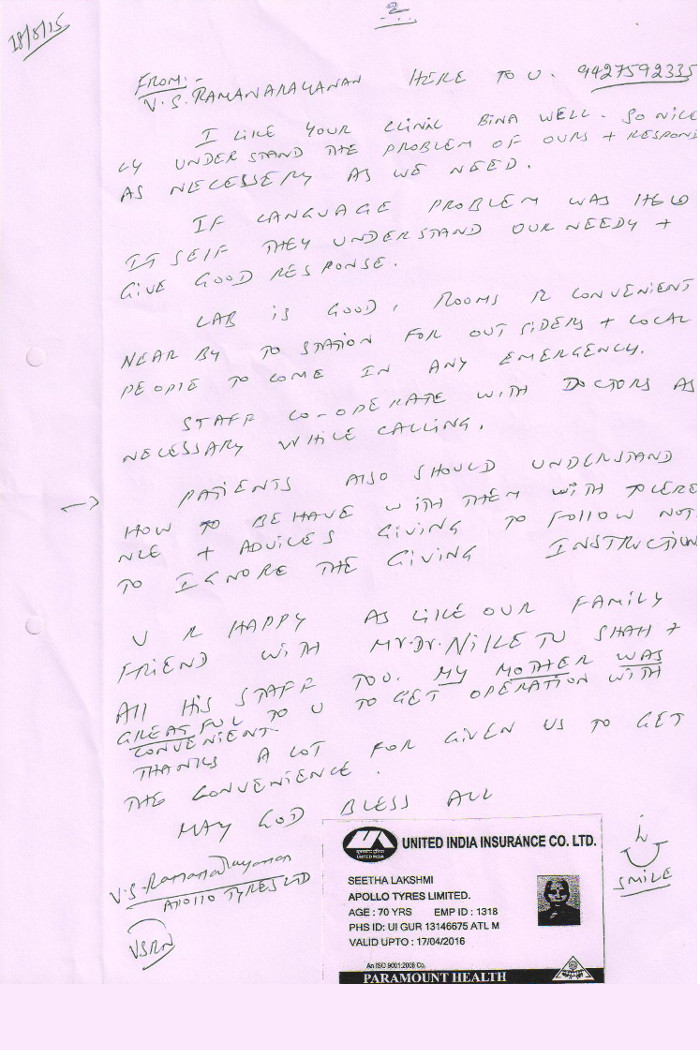 2
18/8/15
FROM:-
V.S. RAMANARAYANAN HERE TO U. 9427592335
I LIKE YOUR CLINIC BINA WELL. SO NICE
LY UNDERSTAND THE PROBLEM OF OURS + RESPOND
AS NECESSERY AS WE NEED.
IF LANGUAGE PROBLEM WAS
ITSELF THEY UNDERSTAND OUR NEEDY +
GIVE GOOD RESPONSE.
LAB IS GOOD, ROOMS R CONVENIENT
NEAR BY TO STATION FOR OUT SIDERS + LOCAL
PEOPLE TO COME IN ANY EMERGENCY.
STAFF CO-OPERATE WITH DOCTORS AS
NECESSARY WHILE CALLING.
→ PATIENTS ALSO SHOULD UNDERSTAND
HOW TO BEHAVE WITH THEM WITH TOLERE
NCE + ADVICES GIVING TO FOLLOW NOT
TO IGNORE THE GIVING INSTRUCTION
U R HAPPY AS LIKE OUR FAMILY
FRIEND WITH Mr. Dr. NIKETU SHAH +
All HIS STAFF TOO. MY MOTHER WAS
GREATFUL TO U TO GET OPERATION WITH
CONVENIENT.
THANKS A LOT FOR GIVEN US TO GET
THE CONVENIENCE.
MAY GOD BLESS ALL
V.S. Ramanarayanan
APOLLO TYRES LTD
VSRN
UNITED INDIA INSURANCE CO. LTD.
UNITED INDIA
SEETHA LAKSHMI
APOLLO TYRES LIMITED.
AGE : 70 YRS EMP ID : 1318
PHS ID: UI GUR 13146675 ATL M
VALID UPTO : 17/04/2016
An ISO 9001:2008 Co.
PARAMOUNT HEALTH
SMILE